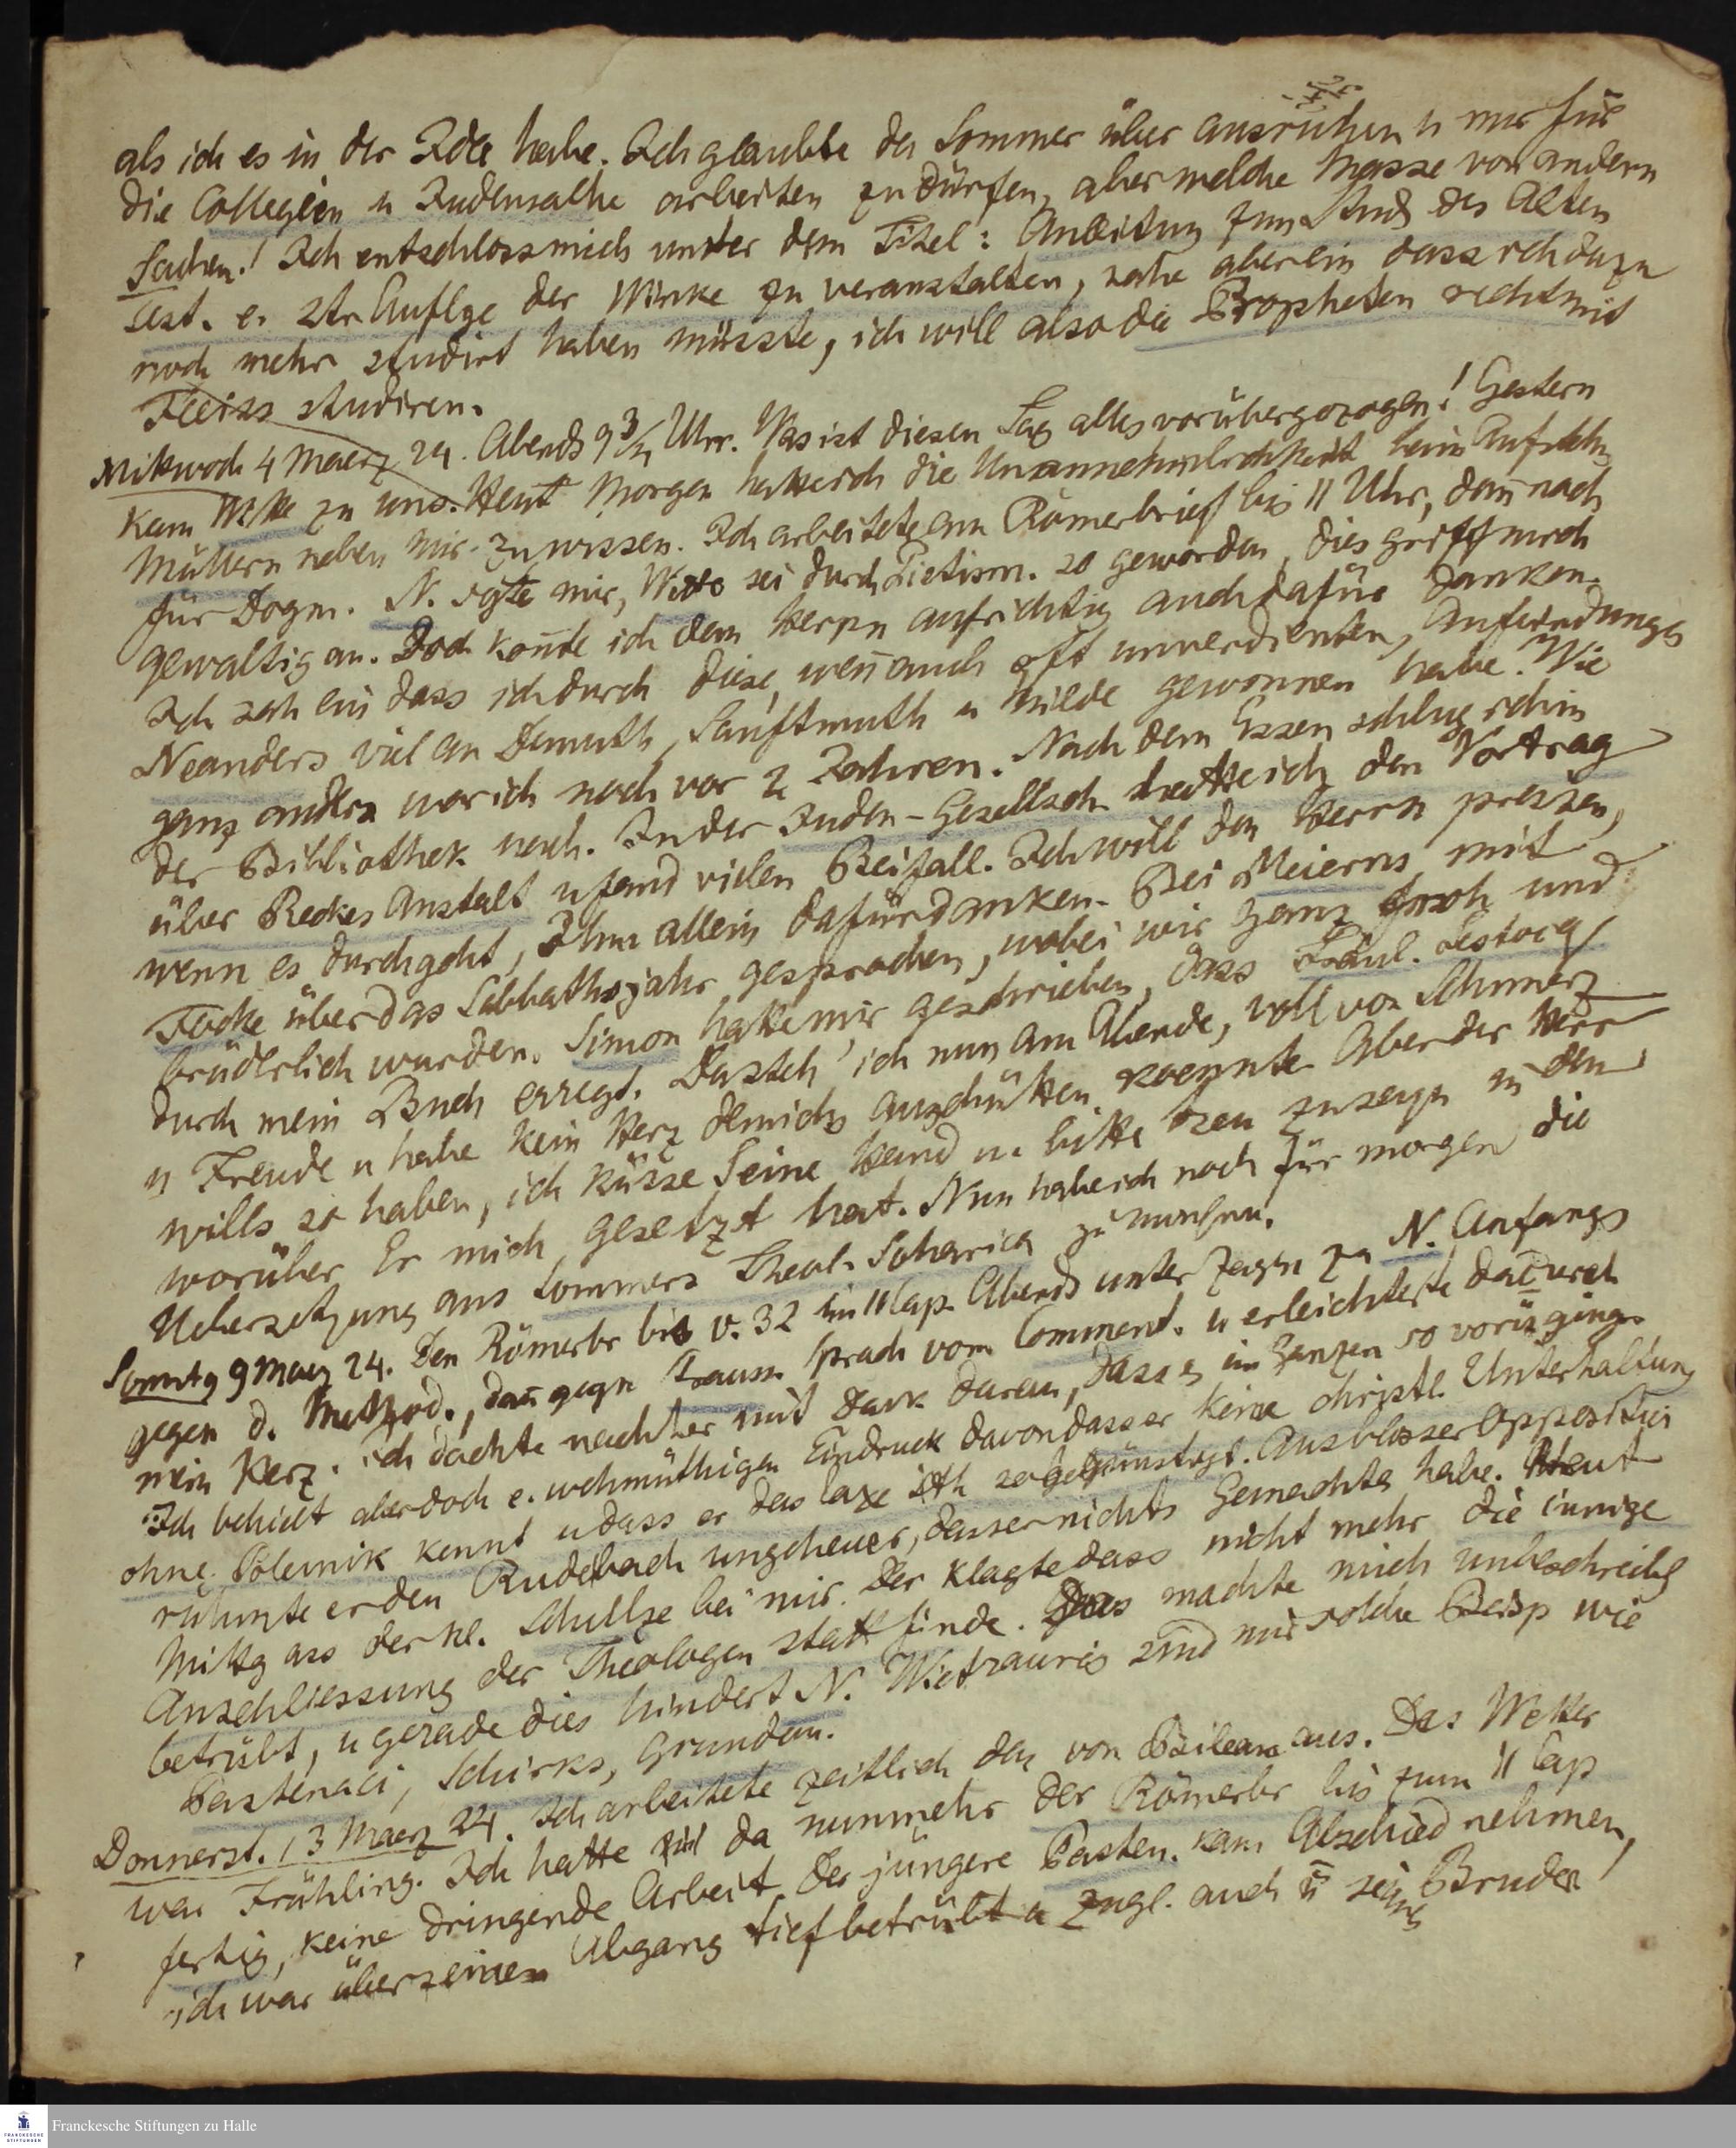 als ich es in der Idee habe. Ich glaubte den Sommer über ausruhen u nur für
die Collegien u Judensache arbeiten zu dürfen, aber welche Masse von andern
Sachen! Ich entschloss mich unter dem Titel: Anleitung zum Stud des Alten
Test. e. 2te Auflge der Winke zu veranstalten, sahe aber ein dass ich dazu
noch mehr studirt haben müsste, ich will also die Propheten recht mit
Fleiss studiren.
Mitwoch 4 Maerz 24. Abends 9 3/4 Uhr. Was ist diesen Tag alles vorübergezogen! Gestern
kam Witte zu uns. Heut Morgen hatte ich die Unannehmlichkeit beim Aufstehn
Müllern neben mir zu wissen. Ich arbeitete am Römerbrief bis 11 Uhr, dan̄ nach
für Dogm. N. sgte mir, Witte sei durch Pietism. so geworden, dies griff mich
gewaltig an. Doch kon̄te ich dem Herrn aufrichtig auch dafür danken.
Ich sah ein dass ich durch diese, wen̄ auch oft unverdienten, Anfeindungen
Neanders viel an Demuth, Sanftmuth u Milde gewonnen habe. Wie
ganz anders war ich noch vor 2 Jahren. Nach dem Essen schlug ich in
der Bibliothek nach. In der Juden-Gesellsch hatte ich den Vortrag
über Reckes Anstalt u fand vielen Beifall. Ich will den Herrn preisen,
wenn es durchgeht, Ihm allein dafür danken. Bei Meierns mit
Focke über das Sabbathsjahr gesprochen, wobei wir ganz froh und
brüderlich wurden. Simon hatte mir geschrieben, dass Fräul. Lestocq
durch mein Buch erregt. Da steh' ich nun am Abende, voll von Schmerz
u Freude u habe kein Herz dem ichs ausschütten koennte. Aber der Herr
wills so haben, ich küsse Seine Hand u. bitte treu zu seyn in dem
worüber Er mich gesetzt hat. Nun habe ich noch für morgen die
Uebersetzung aus Sommers Theol. Soharica zu machen.
Sonntg 9 Maerz 24. Den Römerbr bis v. 32 im 11 Cap. Abends unter Zagen zu N. Anfangs
gegen d. Method., dan̄ gegen Strauss. Sprach vom Comment. u erleichterte dadurch
mein Herz. Ich dachte nachher mit Dank daran, dass es im Ganzen so vorüberging.
Ich behielt aber doch e. wehmüthigen Eindruck davon dass er keine christl. Unterhaltung
ohne Polemik kennt u dass er das laxe so begünstigt. Aus blosser Opposition
rühmte er den Rudelbach ungeheuer, dass er nichts Gemachtes habe. Heut
Mittg ass der kl. Schultze bei mir. Der klagte dass nicht mehr die innige
Anschliessung der Theologen statt finde. Das machte mich unbeschreibl
betrübt, u gerade dies hindert N. Wie traurig sind mir solche Beisp wie
Pastenaci, Schirks, Grundan.
Donnerst. 13 Maerz 24. Ich arbeitete zeitlich den von aus. Das Wetter
war Frühling. Ich hatte da nunmehr der Römerbr bis zum 11 Cap
fertig, keine dringende Arbeit. Der jüngere Pasten. kam Abschied nehmen,
ich war über seinen Abgang tief betrübt u zugl. auch ü seines Bruder
Franckesche Stiftungen zu Halle